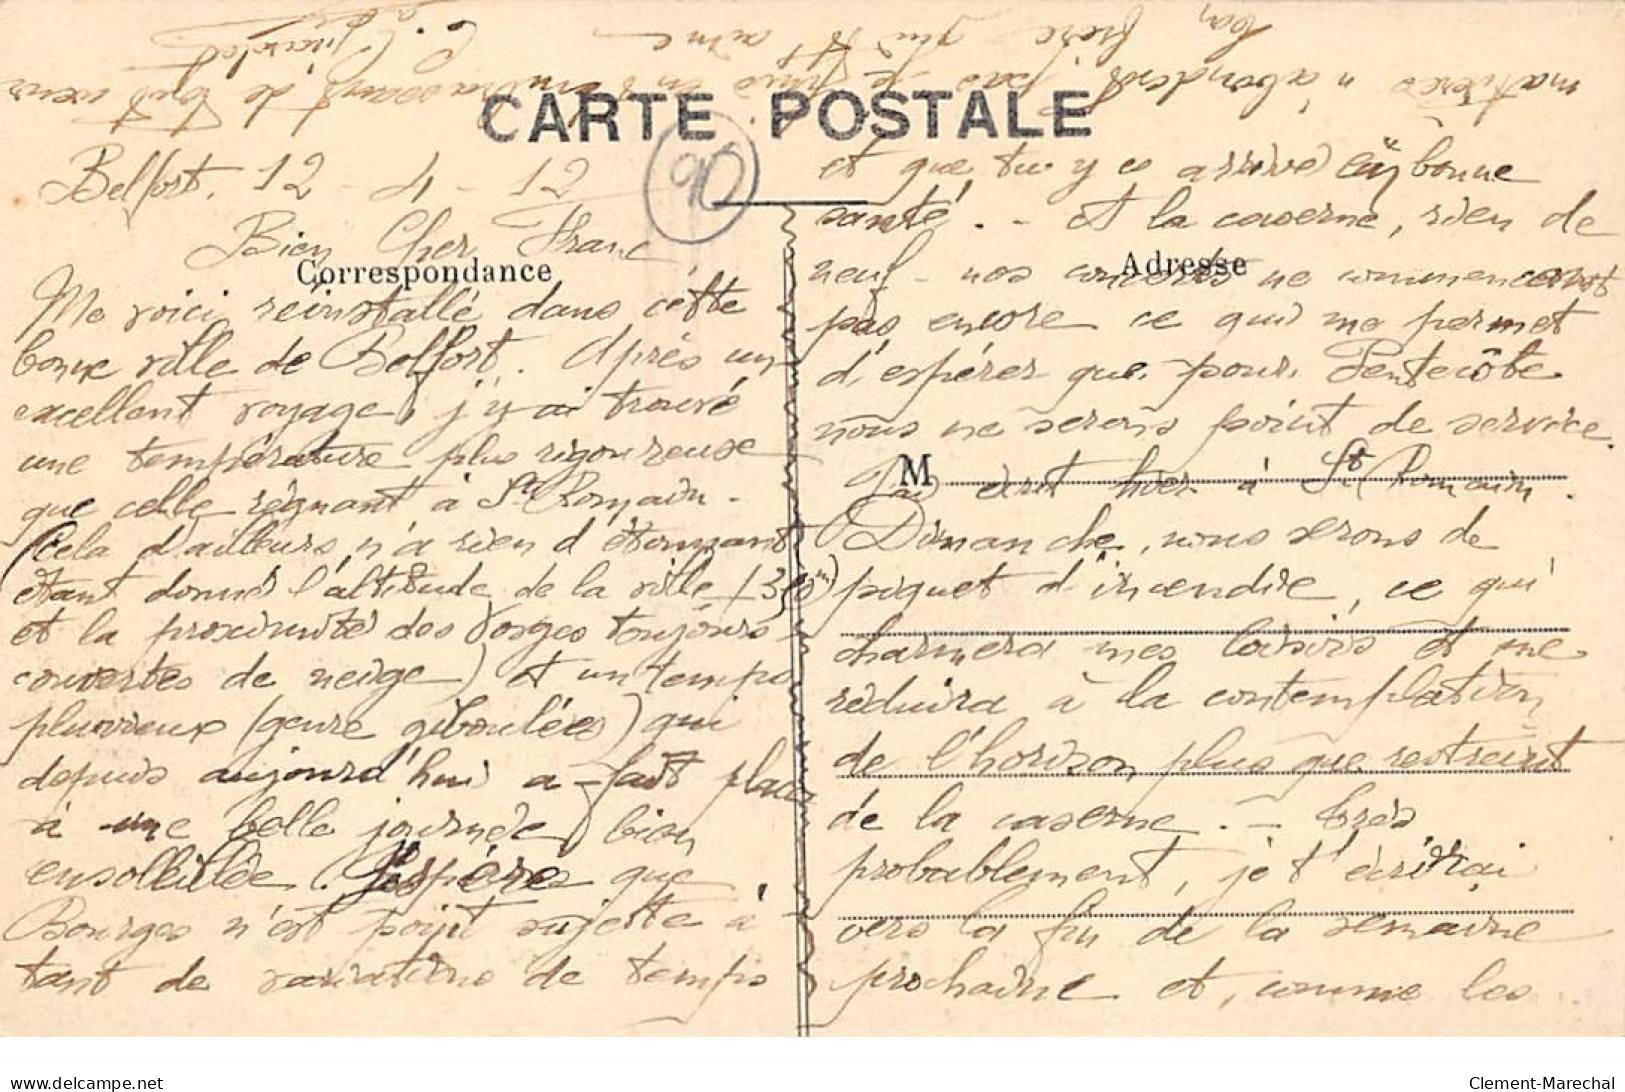 CARTE POSTALE
90
Belfort, 12 - 4 - 12
Bien Cher Franc
Correspondance
Me voici réinstallé dans cette
bonne ville de Belfort. Après un
excellent voyage, j'y ai trouvé
une température plus rigoureuse
que celle régnant à St Romain -
(cela d'ailleurs n'a rien d'étonnant
étant donné l'altitude de la ville
et la proximité des Vosges toujours
couvertes de neige) et un temps
pluvieux (genre giboulées) qui
depuis aujourd'hui a fait place
à une belle journée bien
ensoleillée. J'espère que
Bourges n'est point sujette à
tant de variations de temps
et que tu y es arrivé en bonne
santé. - A la caserne, rien de
Adresse
neuf - nos concerts ne commencent
pas encore ce qui me permet
d'espérer que pour Pentecôte
nous ne serons point de service.
M
J'ai écrit hier à St Romain.
Dimanche, nous serons de
piquet d'incendie, ce qui
charmera mes loisirs et me
réduira à la contemplation
de l'horizon plus que restreint
de la caserne. - Très
probablement, je t'écrirai
vers la fin de la semaine
prochaine et, comme les
matières n'abondent pas je finis en t'embrassant de tout coeur
ton frère qui t'aime
Clement-Marechal